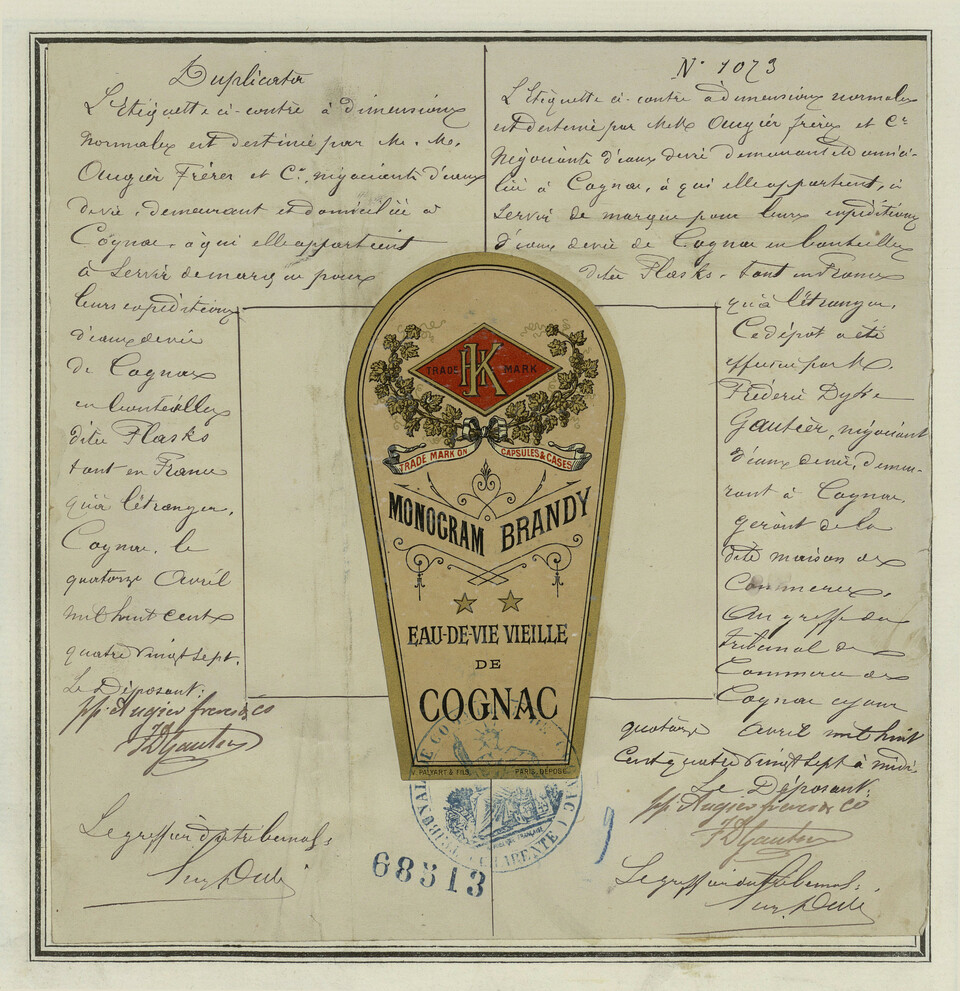 Duplicata
L'Etiquette ci-contre à dimensions
normales est destinée par M. M.
Augier Frères et Cie, négociants d'eaux
de vie, demeurant et domiciliés à
Cognac, à qui elle appartient
à servir de marque pour
leurs expéditions
d'eaux de vie
de Cognac
en bouteilles
dites Flasks
tant en France
qu'à l'étranger.
Cognac, le
quatorze Avril
mil huit cent
quatre vingt sept.
Le Déposant:
pp. Augier freres & Co
FDGautier
Le greffier du tribunal:
N° 1073
L'Etiquette ci-contre à dimensions normales
est destinée par MM Augier frères et Cie
Négociants d'eaux de vie demeurant et domici-
liés à Cognac, à qui elle appartient, à
servir de marque pour leurs expéditions
d'eaux de vie de Cognac en bouteilles
dites Flasks, tant en France
qu'à l'étranger.
Ce dépôt a été
effectué par M.
Frédéric Dyke
Gautier, négociant
d'eaux de vie, demeu-
rant à Cognac,
gérant de la
dite maison de
Commerce,
Au greffe du
tribunal de
Commerce de
Cognac ce jour
quatorze Avril mil huit
cent quatre vingt sept à midi.
Le Déposant:
pp. Augier freres & Co
FDGautier
Le greffier du tribunal:
HK
TRADE MARK
TRADE MARK ON CAPSULES & CASES
MONOGRAM BRANDY
EAU-DE-VIE VIEILLE
DE
COGNAC
V. PALYART & FILS PARIS, DÉPOSÉ.
CHARENTE
68513